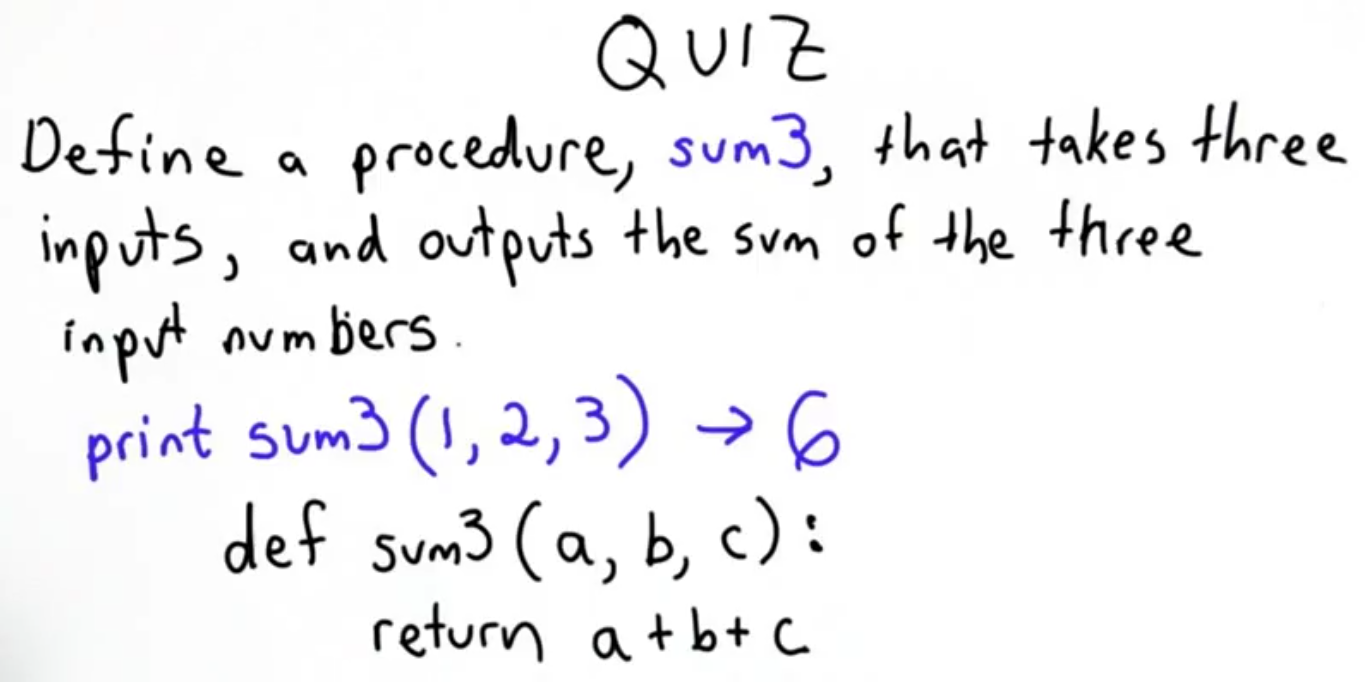 QUIZ
Define a procedure, sum3, that takes three
inputs, and outputs the sum of the three
input numbers.
print sum3(1, 2, 3) → 6
def sum3(a, b, c):
return a + b + c